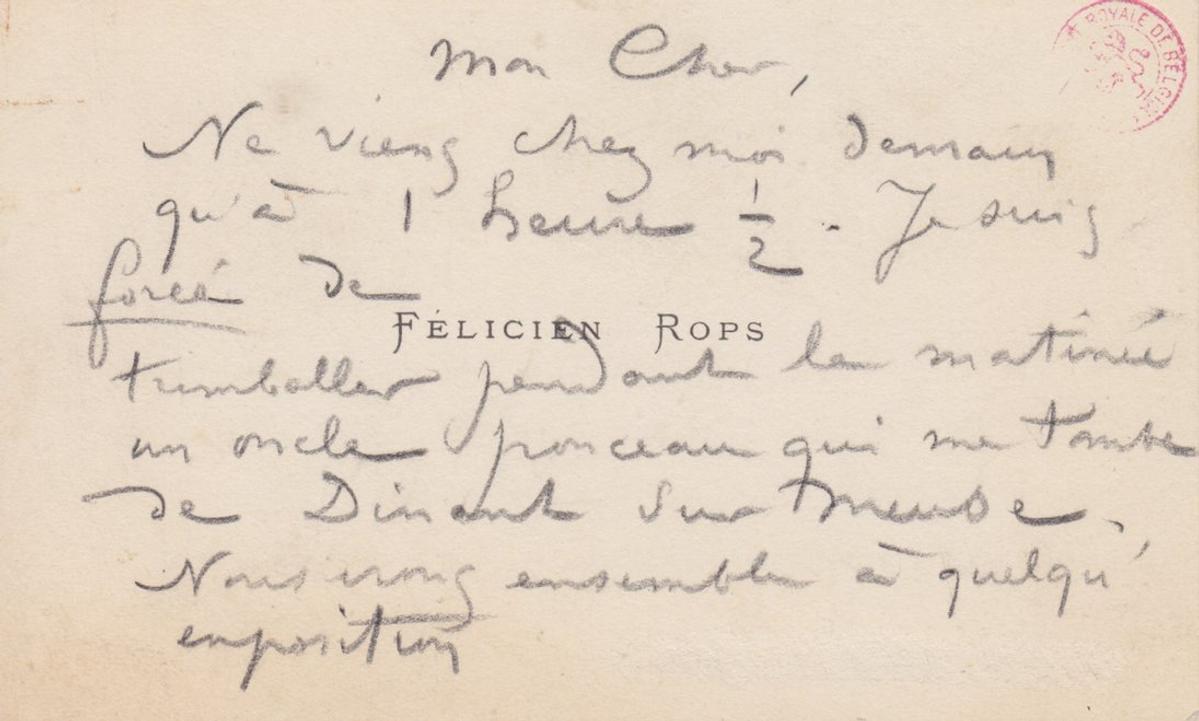 Mon Cher,
ROYALE DE BELGI
Ne viens chez moi demain
qu'à 1 heure ½. Je suis
forcé de
FÉLICIEN ROPS
trimballer pendant la matinée
un oncle ponceau qui me tombe
de Dinant sur Meuse.
Nous irons ensemble à quelqu'
exposition